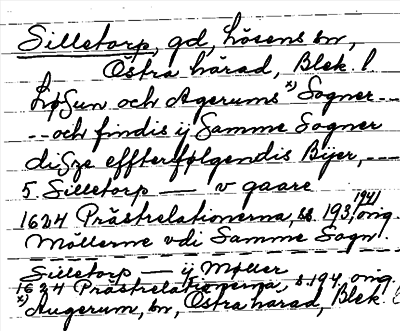 Silletorp, gd, Lösens sn,
Östra härad, Blek. l
Løssun och Agerums x) Sogner ---
-- och findis ij Samme Sogner
disze effterfølgendis Bijer, ---
5. Silletorp — v gaare
1624 Prästrelationerna, s. 193, 1941 orig.
Møllerne vdi Samme Sogn.
Silletorp — ij Møller
1624 Prästrelationerna, s. 194, orig.
x) Augerum, sn, Östra härad, Blek. l